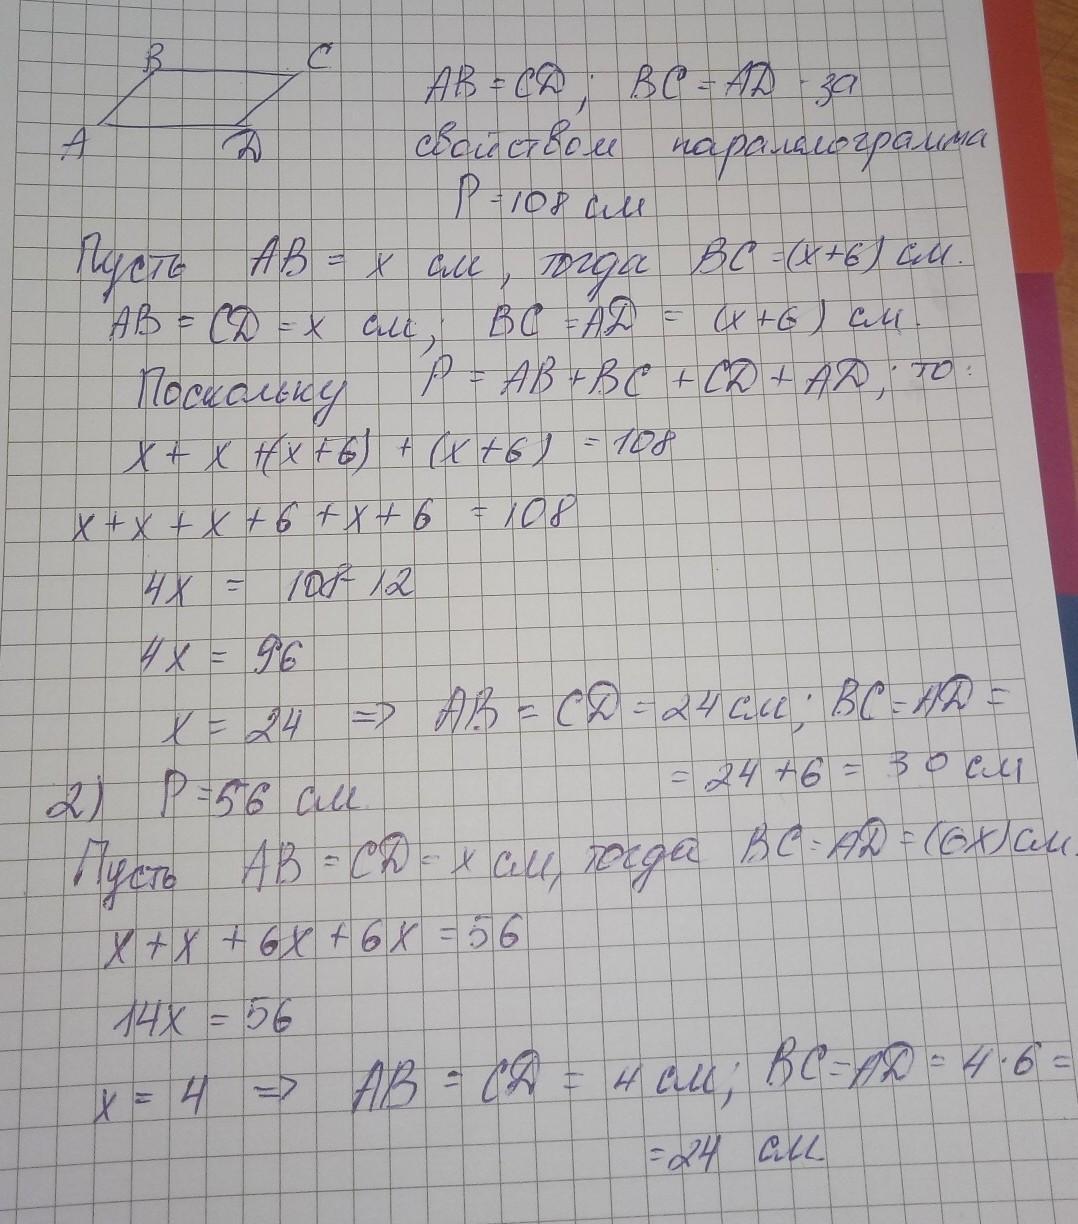 B C
A D
AB = CD; BC = AD - за
свойством параллограмма
P = 108 см
Пусть AB = x см, тогда BC = (x+6) см.
AB = CD = x см; BC = AD = (x+6) см.
Поскольку P = AB + BC + CD + AD; то:
x + x + (x+6) + (x+6) = 108
x + x + x + 6 + x + 6 = 108
4x = 108 - 12
4x = 96
x = 24 => AB = CD = 24 см; BC = AD =
= 24 + 6 = 30 см
2) P = 56 см.
Пусть AB = CD = x см, тогда BC = AD = (6x) см.
x + x + 6x + 6x = 56
14x = 56
x = 4 => AB = CD = 4 см; BC = AD = 4 · 6 =
= 24 см